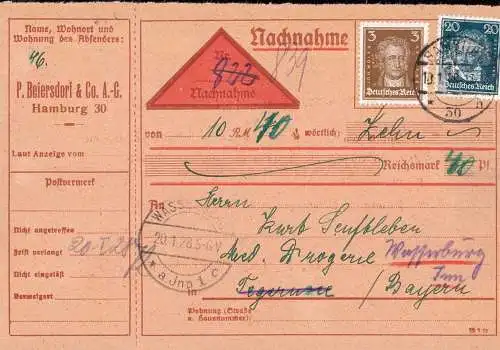 Name, Wohnort und
Wohnung des Absenders:
46.
P. Beiersdorf & Co. A.-G.
Hamburg 30
Laut Anzeige vom
Postvermerk
Nicht angetroffen
Frist verlangt 20.1.28
Nicht eingelöst
Verweigert
Nachnahme
Nr. 839
Nachnahme
3 3
Deutsches Reich
20 20
Deutsches Reich
30
von 10 R.M. 40 ₰, wörtlich: Zehn
Reichsmark 40 Pf.
An
Kurt Senftleben
Med. Drogerie Wasserburg
Inn
Tegernsee / Bayern
20.1.28.5-6 V
a Jnn c
Wohnung (Straße
u. Hausnummer)